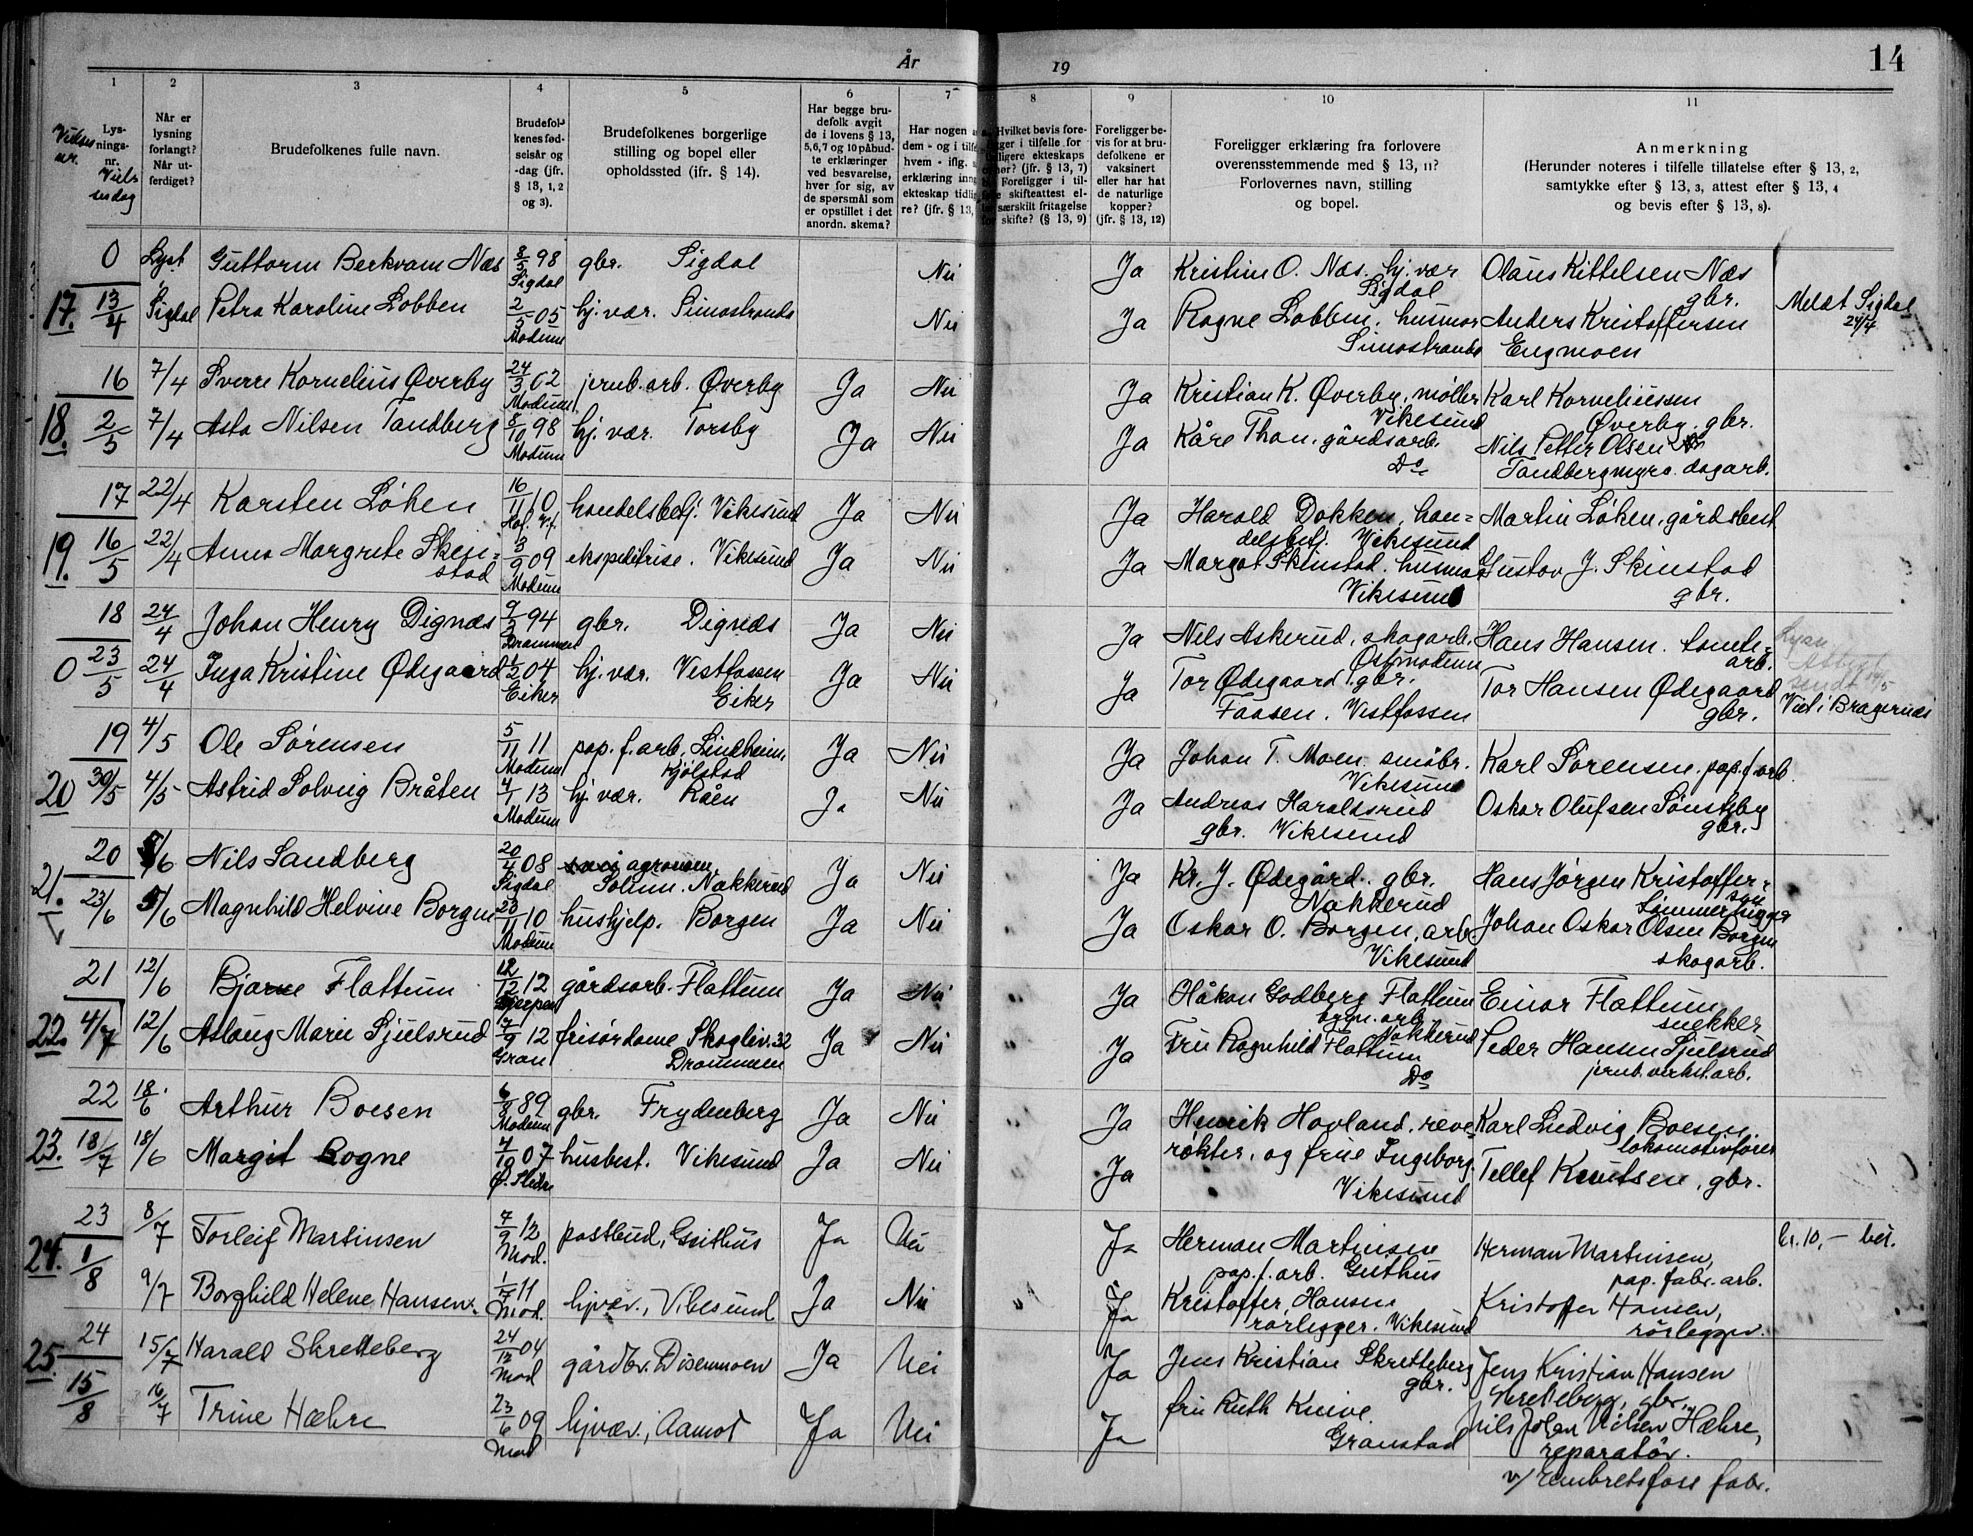 År 19
14
1
2
3
4
5
6
7
8
9
10
11
Vielses nr.
Lysnings-nr. Vielsesdag
Når er lysning forlangt? Når utferdiget?
Brudefolkenes fulle navn.
Brudefolkenes fødselsår og -dag (jfr. § 13, 1, 2 og 3).
Brudefolkenes borgerlige stilling og bopel eller opholdssted (jfr. § 14).
Har begge brudefolk avgit de i lovens § 13, 5,6,7 og 10 påbudte erklæringer ved besvarelse, hver for sig, av de spørsmål som er opstillet i det anordn. skema?
Har nogen
dem - og i tilf
hvem - iflg.
erklæring inng
ekteskap tidlig
re? (jfr. § 13,
Hvilket bevis fore-
ger i tilfelle for
ligere ekteskaps
ør? (jfr. § 13, 7)
Foreligger i til-
skifteattest el-
særskilt fritagelse
skifte? (§ 13, 9)
Foreligger bevis for at brudefolkene er vaksinert eller har hat de naturlige kopper? (jfr. § 13, 12)
Foreligger erklæring fra forlovere overensstemmende med § 13, 11? Forlovernes navn, stilling og bopel.
Anmerkning
(Herunder noteres i tilfelle tillatelse efter § 13, 2, samtykke efter § 13, 3, attest efter § 13, 4 og bevis efter § 13, 8).
0 Lyst Guttorm Berkvam Næs 8/5 98 Sigdal gbr. Sigdal Nei Ja Kristine O. Næs. hj. vær Sigdal Olaus Kittelsen Næs gbr.
17. 13/4 Sigdal Petra Karoline Lobben 2/5 05 Modum hj. vær. Simostranda Nei Ja Ragne Lobben. husmor Simostranda Anders Kristoffersen Engmoen Meldt Sigdal 24/4
16 7/4 Sverre Kornelius Øverby 24/3 02 Modum jernb. arb. Øverby Ja Nei Ja Kristian K. Øverby, møller Vikesund Karl Korneliussen Øverby. gbr.
18. 2/5 7/4 Asta Nilsen Tandberg 8/10 98 Modum hj. vær. Torsby Ja Nei Ja Kåre Thon. gårdsarb. Do Nils Petter Olsen Tandbergmyra. dagarb.
17 22/4 Karsten Løken 16/11 10 Hof. Vf. handelsbetj. Vikesund Ja Nei Ja Harald Dokken, handelsbetj. Vikesund Martin Løken, gårdsbest
19. 16/5 22/4 Anna Margrete Skinstad 3/9 09 Modum ekspeditrise. Vikesund Ja Nei Ja Margot Skinstad. husmor Vikesund Gustav J. Skinstad gbr.
18 24/4 Johan Henry Dignæs 9/2 94 Drammen gbr. Dignæs Ja Nei Ja Nils Askerud, skogarb. Østmodum Hans Hansen. tomtearb.
0 23/5 24/4 Inga Kristine Ødegaard 1/2 04 Eiker hj. vær. Vestfossen Eiker Ja Nei Ja Tor Ødegaard, gbr. Faasen. Vestfossen Tor Hansen Ødegaard gbr. Lysn attest sendt 14/5 Viet i Bragernes
19 4/5 Ole Sørensen 5/11 11 Modum pap. f. arb. Lindheim, Kjølstad Ja Nei Ja Johan T. Moen småbr. Vikesund Karl Sørensen. pap. f. arb.
20 30/5 4/5 Astrid Solveig Bråten 4/1 13 Modum hj. vær. Råen Ja Nei Ja Andreas Haraldsrud gbr. Vikesund Oskar Olufsen Sønsteby gbr.
20 5/6 Nils Sandberg 20/4 08 Sigdal agronom Solum. Nakkerud Ja Nei Ja Kr. J. Ødegård. gbr. Nakkerud Hans Jørgen Kristoffersen
21. 23/6 5/6 Magnhild Helvine Borgen 23/11 10 Modum hushjelp. Borgen Ja Nei Ja Oskar O. Borgen, arb Vikesund Johan Oskar Olsen Borgen skogarb.
21 12/6 Bjarne Flattum 12/12 12 gårdsarb. Flattum Ja Nei Ja Håkon Godberg Flattum bygn. arb. Nakkerud Einar Flattum snekker
22. 4/7 12/6 Aslaug Marie Sjulsrud 17/9 12 Gran frisørdame Skogliv. 32 Drammen Ja Nei Ja Fru Ragnhild Flattum Do Peder Hansen Sjulsrud jernb. verkst. arb.
22 18/6 Arthur Boesen 6/3 89 Modum gbr. Frydenberg Ja Nei Ja Henrik Hovland. reve- Karl Ludvig Boesen, lokomotivfører
23. 18/7 18/6 Margit Rogne 4/10 07 Ø. Slidre husbest. Vikesund Ja Nei Ja røkter, og frue Ingeborg Vikesund Tellef Knutsen, gbr.
23 8/7 Torleif Martinsen 7/9 12 Mod. postbud, Geithus Ja Nei Ja Herman Martinsen pap. f. arb. Geithus Herman Martinsen, pap. fabr. arb. kr. 10,- bet.
24. 1/8 9/7 Borghild Helene Hansen. 1/7 11 Mod. hjvær., Vikesund Ja Nei Ja Kristoffer Hansen rørlegger. Vikesund Kristoffer Hansen, rørlegger.
24 15/7 Harald Skretteberg 24/12 04 Mod gårdbr. Disenmoen Ja Nei Ja Jens Kristian Skretteberg gbr. Jens Kristian Hansen Skretteberg, gbr.
25. 15/8 16/7 Trine Hæhre 23/6 09 Mod hjvær., Aamot Ja Nei Ja fru Ruth Knive. Granstad Nils Johan Nilsen Hæhre, reparatør. v/ Embretsfoss fabr.